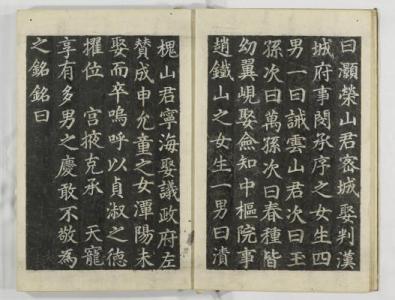 曰灝榮山君密城娶判漢
城府事閔承序之女生四
男一曰誠雲山君次曰玉
孫次曰萬孫次曰春種皆
幼翼峴娶僉知中樞院事
趙鐵山之女生一男曰瀆
槐山君寧海娶議政府左
賛成申允童之女潭陽未
娶而卒嗚呼以貞淑之德
擢位 宮掖克承 天寵
享有多男之慶敢不敬為
之銘銘曰